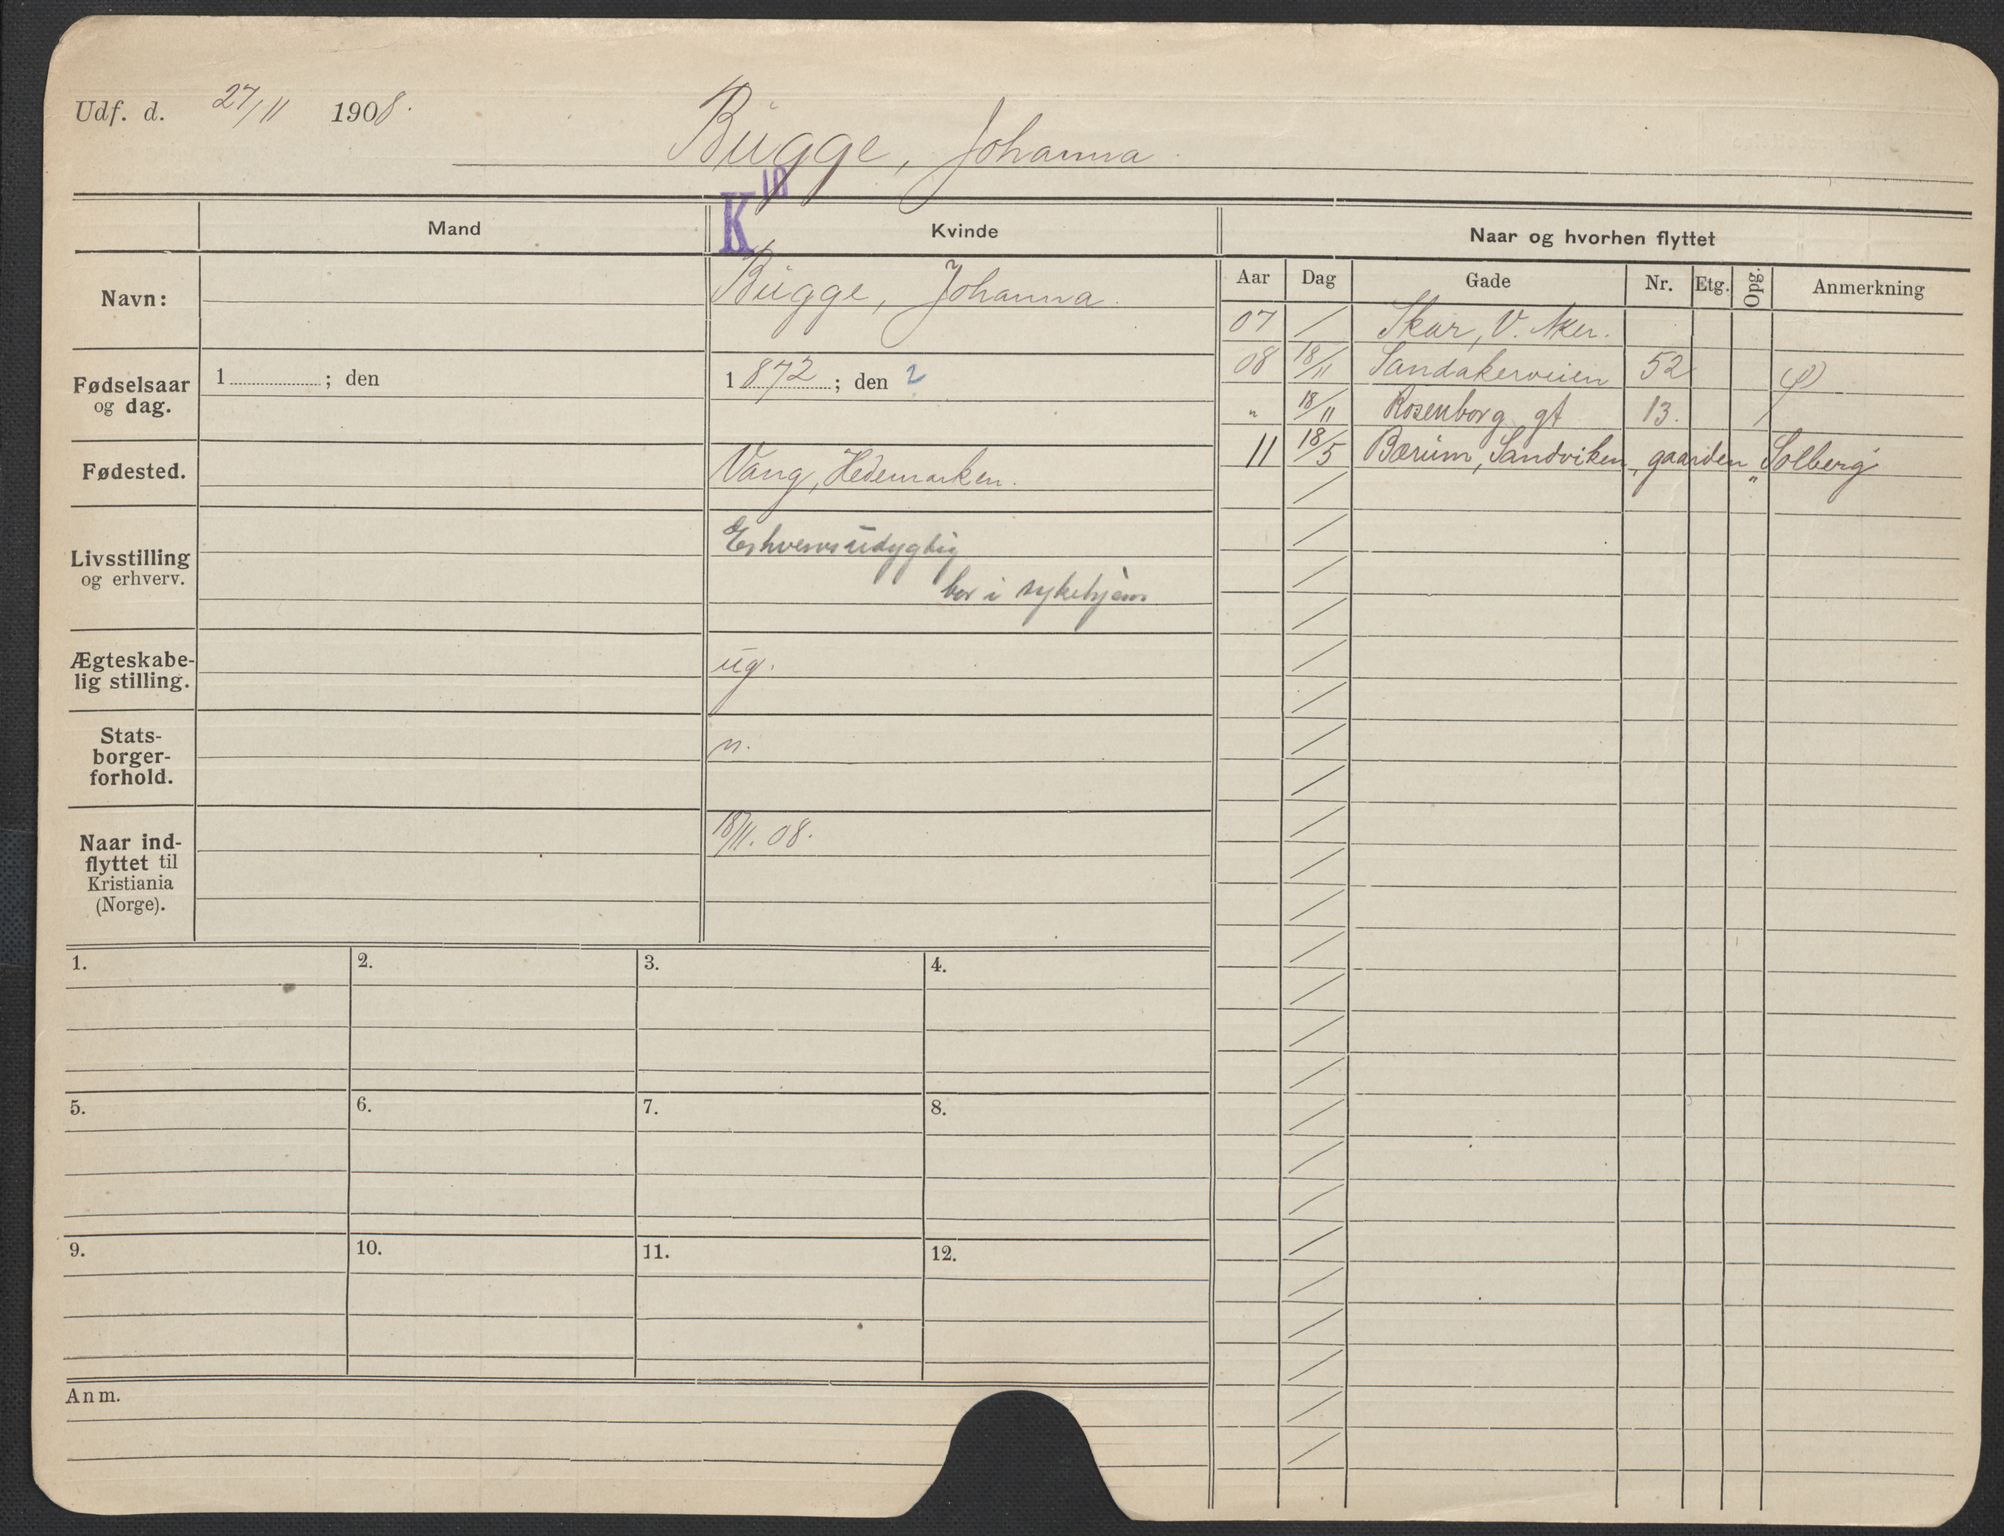 Udf. d. 27/11 1908.
Bugge, Johanna.
K 18
Mand
Kvinde
Naar og hvorhen flyttet
Aar
Dag
Gade
Nr.
Etg.
Opg.
Anmerkning
Navn:
Bugge, Johanna.
Fødselsaar
og dag.
1 ; den
1872 ; den ?
Fødested.
Vang, Hedemarken.
Livsstilling
og erhverv.
Erhvervsudygtig
bor i sykehjem
Ægteskabe-
lig stilling.
ug.
Stats-
borger-
forhold.
n.
Naar ind-
flyttet til
Kristiania
(Norge).
18/11. 08.
07 / Skar, V. Aker.
08 18/11 Sandakerveien 52
" 18/11 Rosenborg gt 13.
11 18/5 Bærum, Sandviken, gaarden „Solberg"
1.
2.
3.
4.
5.
6.
7.
8.
9.
10.
11.
12.
Anm.